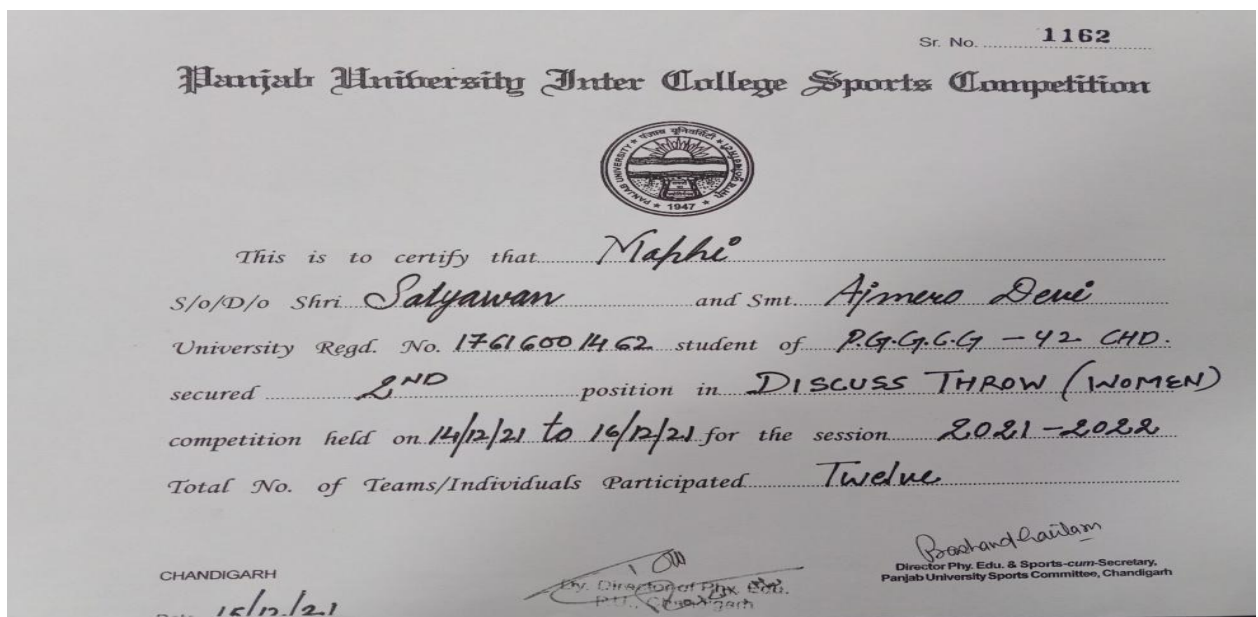 Sr. No. 1162
Panjab University Inter College Sports Competition
PANJAB UNIVERSITY
पंजाब यूनिवर्सिटी
1947
This is to certify that Maphi
S/o/D/o Shri Satyawan and Smt. Ajmero Devi
University Regd. No. 17616001462 student of P.G.G.C.G - 42 CHD.
secured 2ND position in DISCUSS THROW (WOMEN)
competition held on 14/12/21 to 16/12/21 for the session 2021-2022
Total No. of Teams/Individuals Participated Twelve
CHANDIGARH
Date 15/12/21
Dy. Director of Phy. Edu.
P.U., Chandigarh
Director Phy. Edu. & Sports-cum-Secretary,
Panjab University Sports Committee, Chandigarh